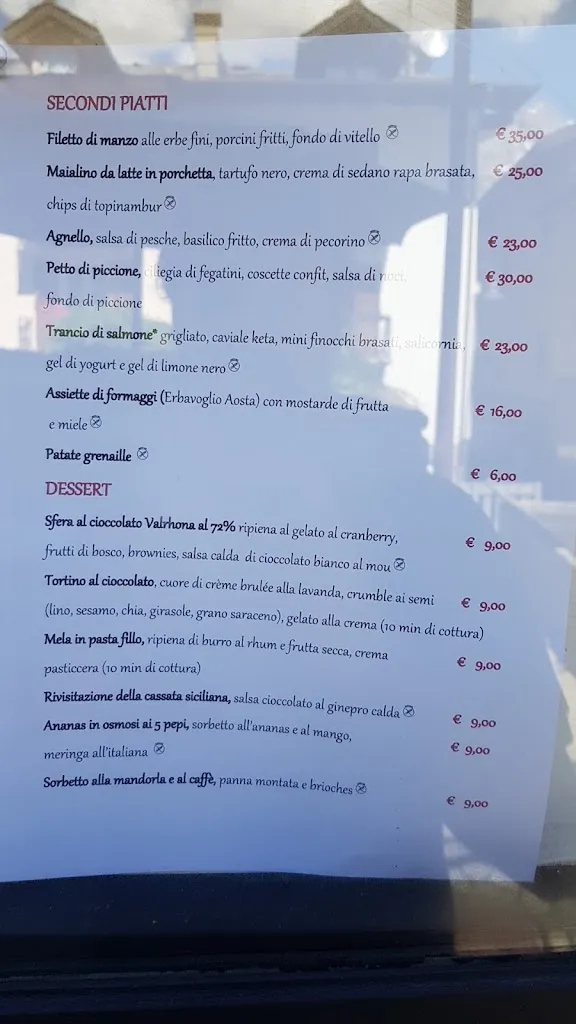 SECONDI PIATTI
Filetto di manzo alle erbe fini, porcini fritti, fondo di vitello € 35,00
Maialino da latte in porchetta, tartufo nero, crema di sedano rapa brasata, € 25,00
chips di topinambur
Agnello, salsa di pesche, basilico fritto, crema di pecorino € 23,00
Petto di piccione, ciliegia di fegatini, coscette confit, salsa di noci, € 30,00
fondo di piccione
Trancio di salmone* grigliato, caviale keta, mini finocchi brasati, salicornia, € 23,00
gel di yogurt e gel di limone nero
Assiette di formaggi (Erbavoglio Aosta) con mostarde di frutta € 16,00
e miele
Patate grenaille € 6,00
DESSERT
Sfera al cioccolato Valrhona al 72% ripiena al gelato al cranberry, € 9,00
frutti di bosco, brownies, salsa calda di cioccolato bianco al mou
Tortino al cioccolato, cuore di crème brulée alla lavanda, crumble ai semi € 9,00
(lino, sesamo, chia, girasole, grano saraceno), gelato alla crema (10 min di cottura)
Mela in pasta fillo, ripiena di burro al rhum e frutta secca, crema € 9,00
pasticcera (10 min di cottura)
Rivisitazione della cassata siciliana, salsa cioccolato al ginepro calda € 9,00
Ananas in osmosi ai 5 pepi, sorbetto all'ananas e al mango, € 9,00
meringa all'italiana
Sorbetto alla mandorla e al caffè, panna montata e brioches € 9,00